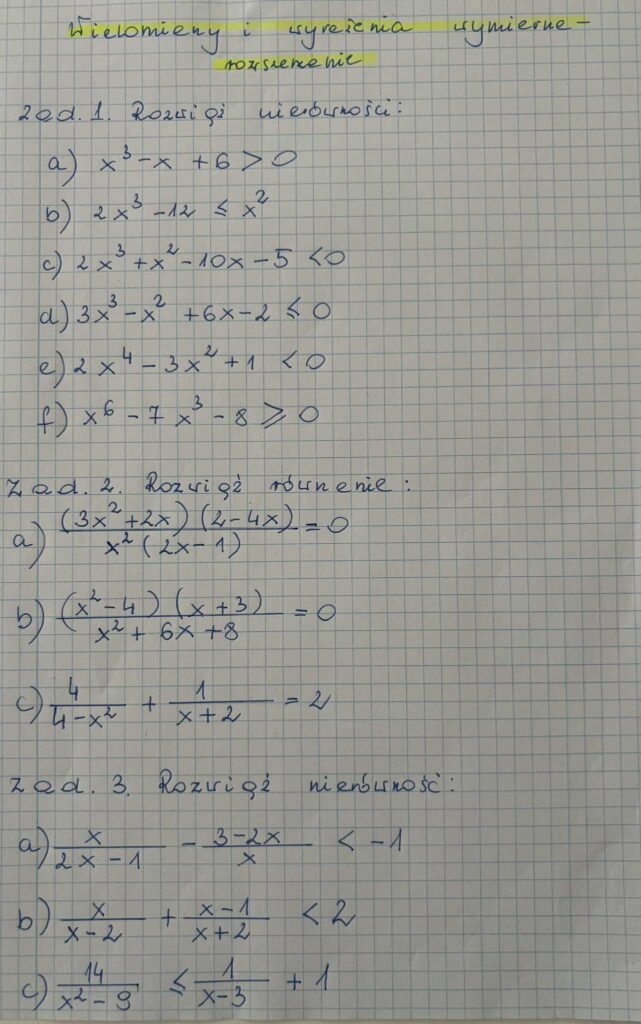 Wielomiany i wyrażenia wymierne -
rozszerzenie
Zad. 1. Rozwiąż nierówności:
a) x³ - x + 6 > 0
b) 2x³ - 12 ≤ x²
c) 2x³ + x² - 10x - 5 < 0
d) 3x³ - x² + 6x - 2 ≤ 0
e) 2x⁴ - 3x² + 1 < 0
f) x⁶ - 7x³ - 8 ≥ 0
Zad. 2. Rozwiąż równanie:
a) (3x² + 2x)(2 - 4x) / x²(2x - 1) = 0
b) (x² - 4)(x + 3) / x² + 6x + 8 = 0
c) 4 / 4 - x² + 1 / x + 2 = 2
Zad. 3. Rozwiąż nierówność:
a) x / 2x - 1 - 3 - 2x / x < -1
b) x / x - 2 + x - 1 / x + 2 < 2
c) 14 / x² - 9 ≤ 1 / x - 3 + 1